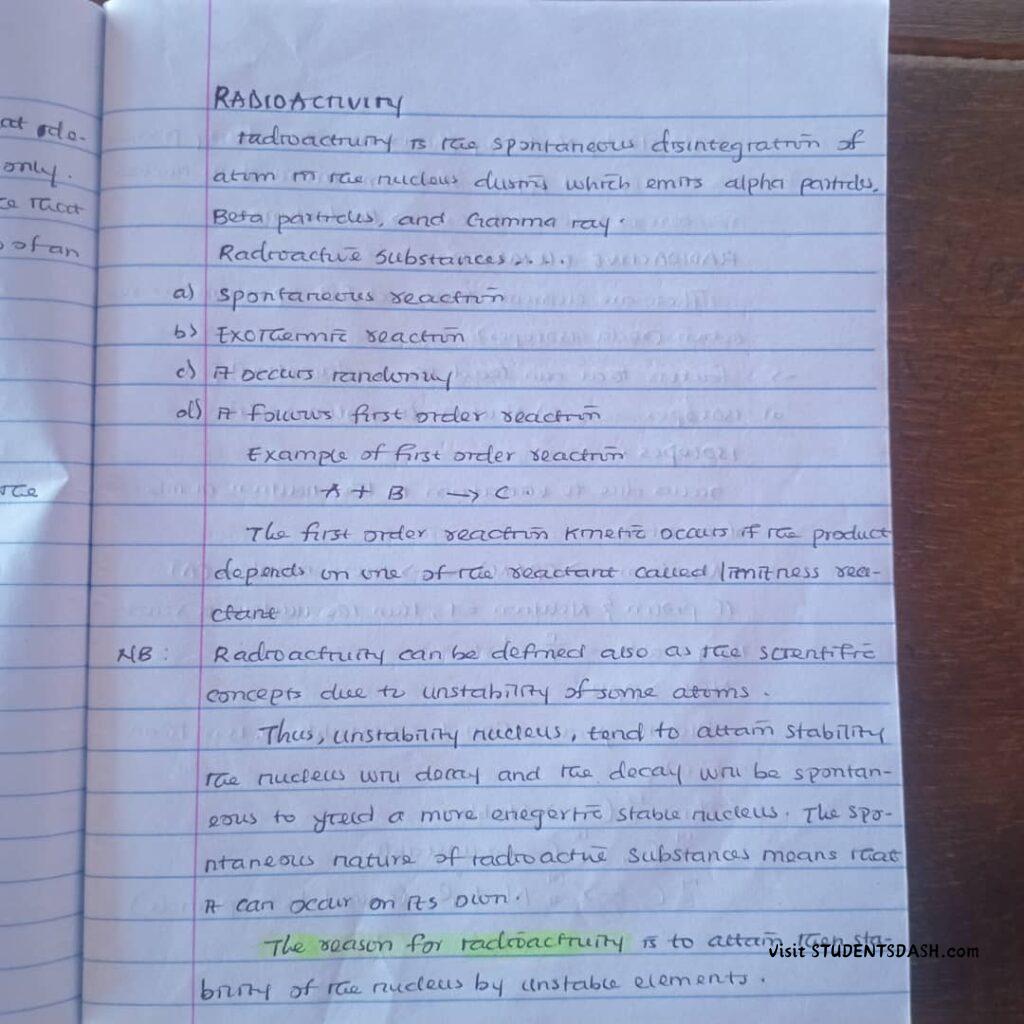 RADIOACTIVITY
radioactivity is the spontaneous disintegration of
at
atom in the nucleus during which emits alpha particles,
only.
Beta particles, and Gamma ray.
of an
Radioactive substances....
a) spontaneous reaction
b) Exothermic reaction
c) it occurs randomly
d) it follows first order reaction
Example of first order reaction
the
A + B → C
The first order reaction kinetic occurs if the product
depends on one of the reactant called limitness rea-
ctant
NB: Radioactivity can be defined also as the scientific
concepts due to unstability of some atoms.
Thus, unstability nucleus, tend to attain stability
the nucleus will decay and the decay will be spontan-
eous to yield a more enegertic stable nucleus. The spo-
ntaneous nature of radioactive substances means that
it can occur on its own.
The reason for radioactivity is to attain sta-
visit STUDENTSDASH.com
bility of the nucleus by unstable elements.